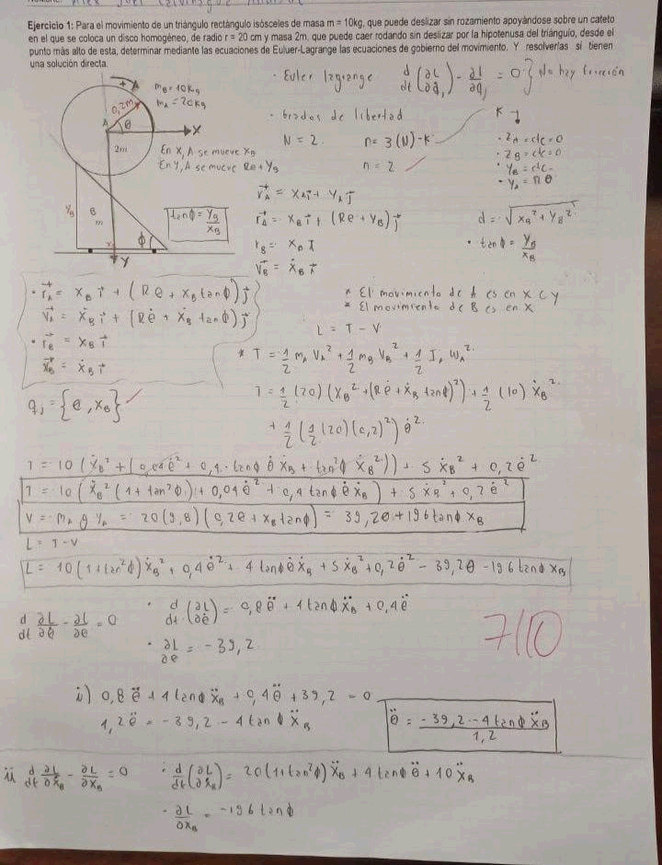 Ejercicio 1: Para el movimiento de un triángulo rectángulo isósceles de masa m = 10kg, que puede deslizar sin rozamiento apoyándose sobre un cateto
en el que se coloca un disco homogéneo, de radio r = 20 cm y masa 2m, que puede caer rodando sin deslizar por la hipotenusa del triángulo, desde el
punto más alto de esta, determinar mediante las ecuaciones de Euluer-Lagrange las ecuaciones de gobierno del movimiento. Y resolverlas si tienen
una solución directa.
+ A
0,2m
m_B = 10Kg
m_A = 20Kg
A
θ
X
2m
En X, A se mueve X_B
En Y, A se mueve Rθ + Y_B
Y_B
B
m
tanϕ = Y_B / X_B
ϕ
Y
· Euler lagrange d/dt (∂L/∂q̇_j) - ∂L/∂q_j = 0 } No hay fricción
· Grados de libertad
N = 2 n = 3(N) - K
n = 2
K
· Z_A = cte = 0
· Z_B = cte = 0
· Y_B = cte
· Y_A = n θ
r_A = X_A i + Y_A j
r_A = X_B i + (Rθ + Y_B) j
r_B = X_B i
V_B = ẋ_B i
d = √(X_B² + Y_B²)
· tanϕ = Y_B / X_B
· r_A = X_B i + (Rθ + X_B tanϕ) j
V_A = ẋ_B i + (Rθ̇ + ẋ_B tanϕ) j
· r_B = X_B i
ẋ_B = ẋ_B i
* El movimiento de A es en X y Y
* El movimiento de B es en X
L = T - V
* T = 1/2 m_A V_A² + 1/2 m_B V_B² + 1/2 I, ω_A²
q_j = {θ, X_B}
T = 1/2 (20) (ẋ_B² + (Rθ̇ + ẋ_B tanϕ)²) + 1/2 (10) ẋ_B²
+ 1/2 (1/2 (20) (0,2)²) θ̇²
T = 10 (ẋ_B² + (0,04θ̇² + 0,4 · tanϕ θ̇ ẋ_B + tan²ϕ ẋ_B²)) + 5 ẋ_B² + 0,2 θ̇²
T = 10 (ẋ_B² (1 + tan²ϕ) + 0,04 θ̇² + 0,4 tanϕ θ̇ ẋ_B) + 5 ẋ_B² + 0,2 θ̇²
V = m_A g Y_A = 20 (9,8) (0,2θ + X_B tanϕ) = 39,2θ + 196 tanϕ X_B
L = T - V
L = 10 (1 + tan²ϕ) ẋ_B² + 0,4 θ̇² + 4 tanϕ θ̇ ẋ_B + 5 ẋ_B² + 0,2 θ̇² - 39,2θ - 196 tanϕ X_B
d/dt ∂L/∂θ̇ - ∂L/∂θ = 0 · d/dt (∂L/∂θ̇) = 0,8 θ̈ + 4 tanϕ ẍ_B + 0,4 θ̈
· ∂L/∂θ = -39,2
7/10
i) 0,8 θ̈ + 4 tanϕ ẍ_B + 0,4 θ̈ + 39,2 = 0
1,2 θ̈ = -39,2 - 4 tanϕ ẍ_B
θ̈ = (-39,2 - 4 tanϕ ẍ_B) / 1,2
ii d/dt ∂L/∂ẋ_B - ∂L/∂X_B = 0 · d/dt (∂L/∂ẋ_B) = 20 (1 + tan²ϕ) ẍ_B + 4 tanϕ θ̈ + 10 ẍ_B
· ∂L/∂X_B = -196 tanϕ